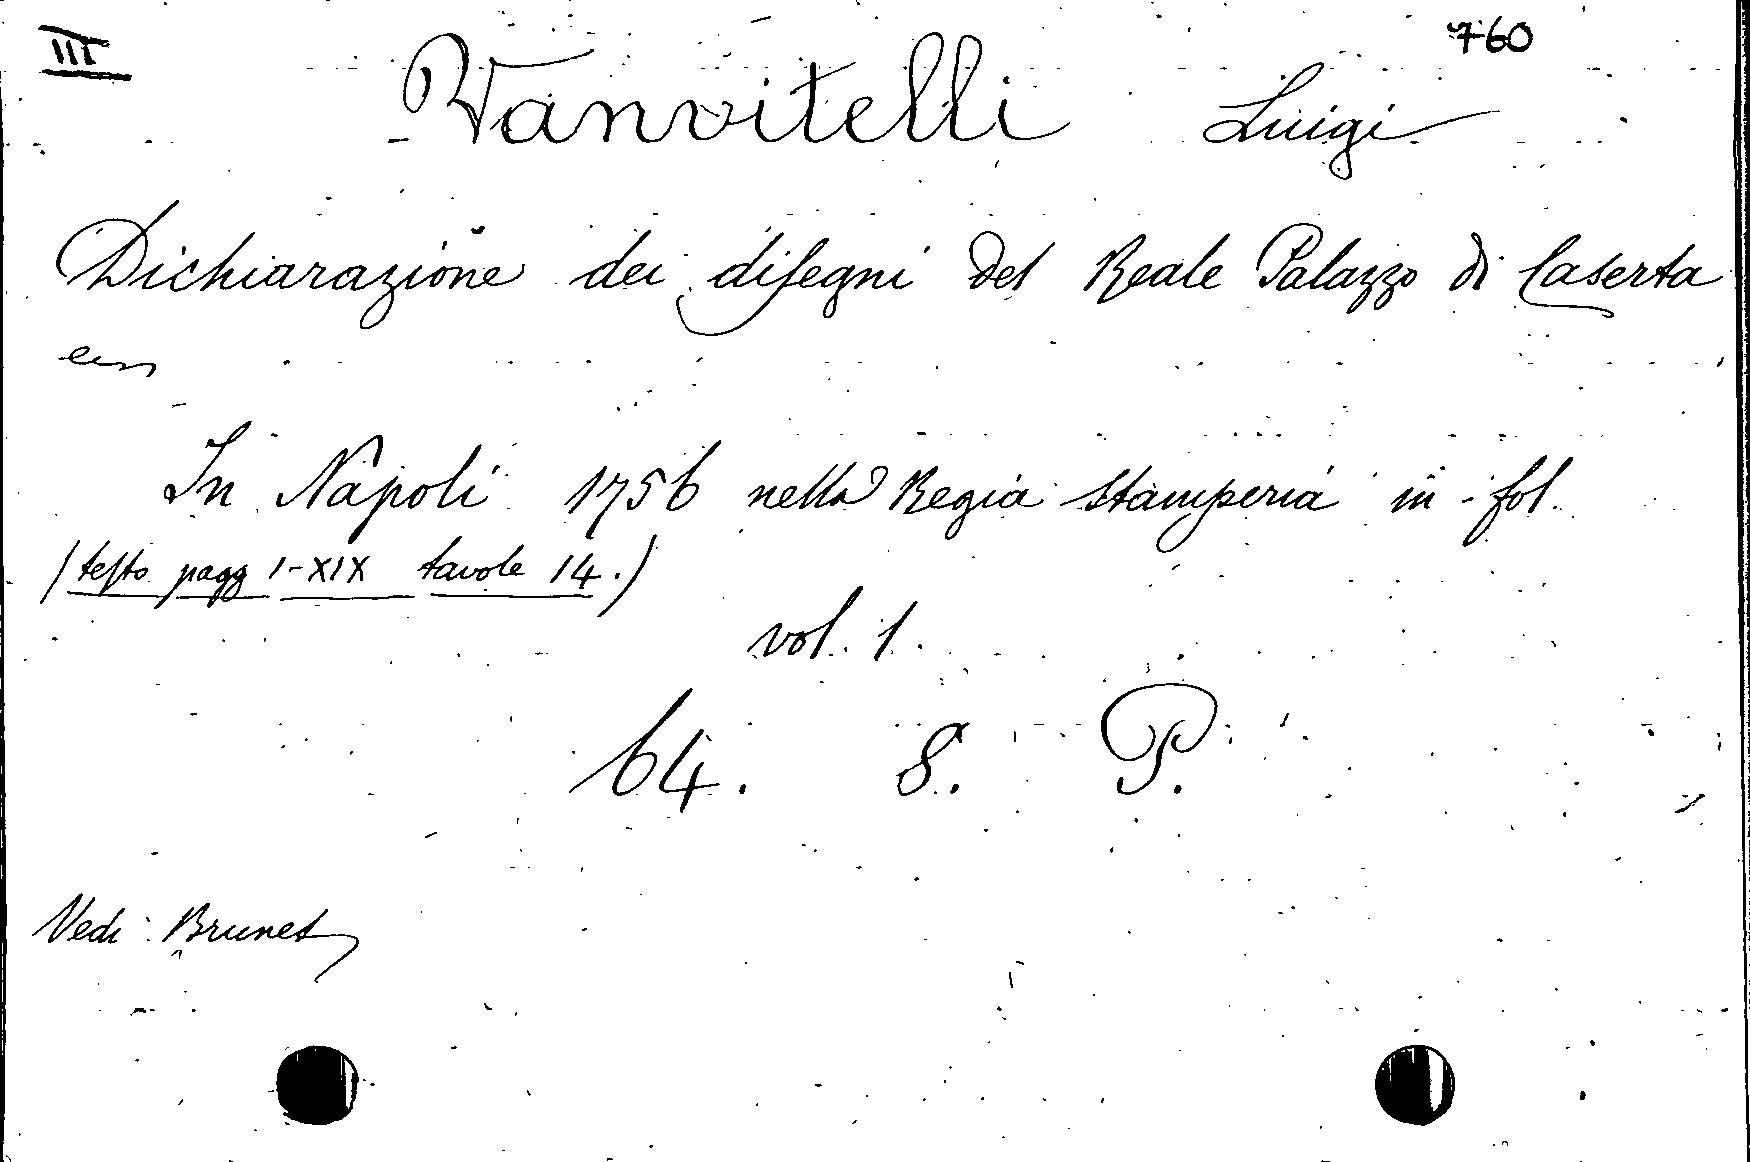 III 760
Vanvitelli Luigi
Dichiarazione dei diſegni del Reale Palazzo di Caserta
In Napoli 1756 nella Regia Stamperia in-fol.
(teſto pagg I-XIX tavole 14.)
vol. 1.
64. 8. P.
Vedi Brunet